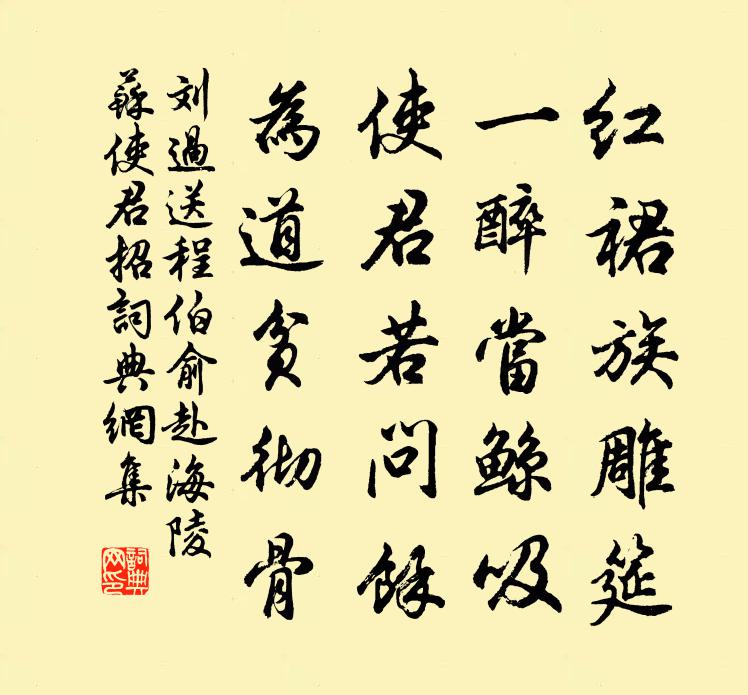 红裙族雕筵
一醉當鲸吸
使君若问馀
為道貧彻骨
刘過送程伯俞赴海陵
蘇使君招詞典網集
詞典网印